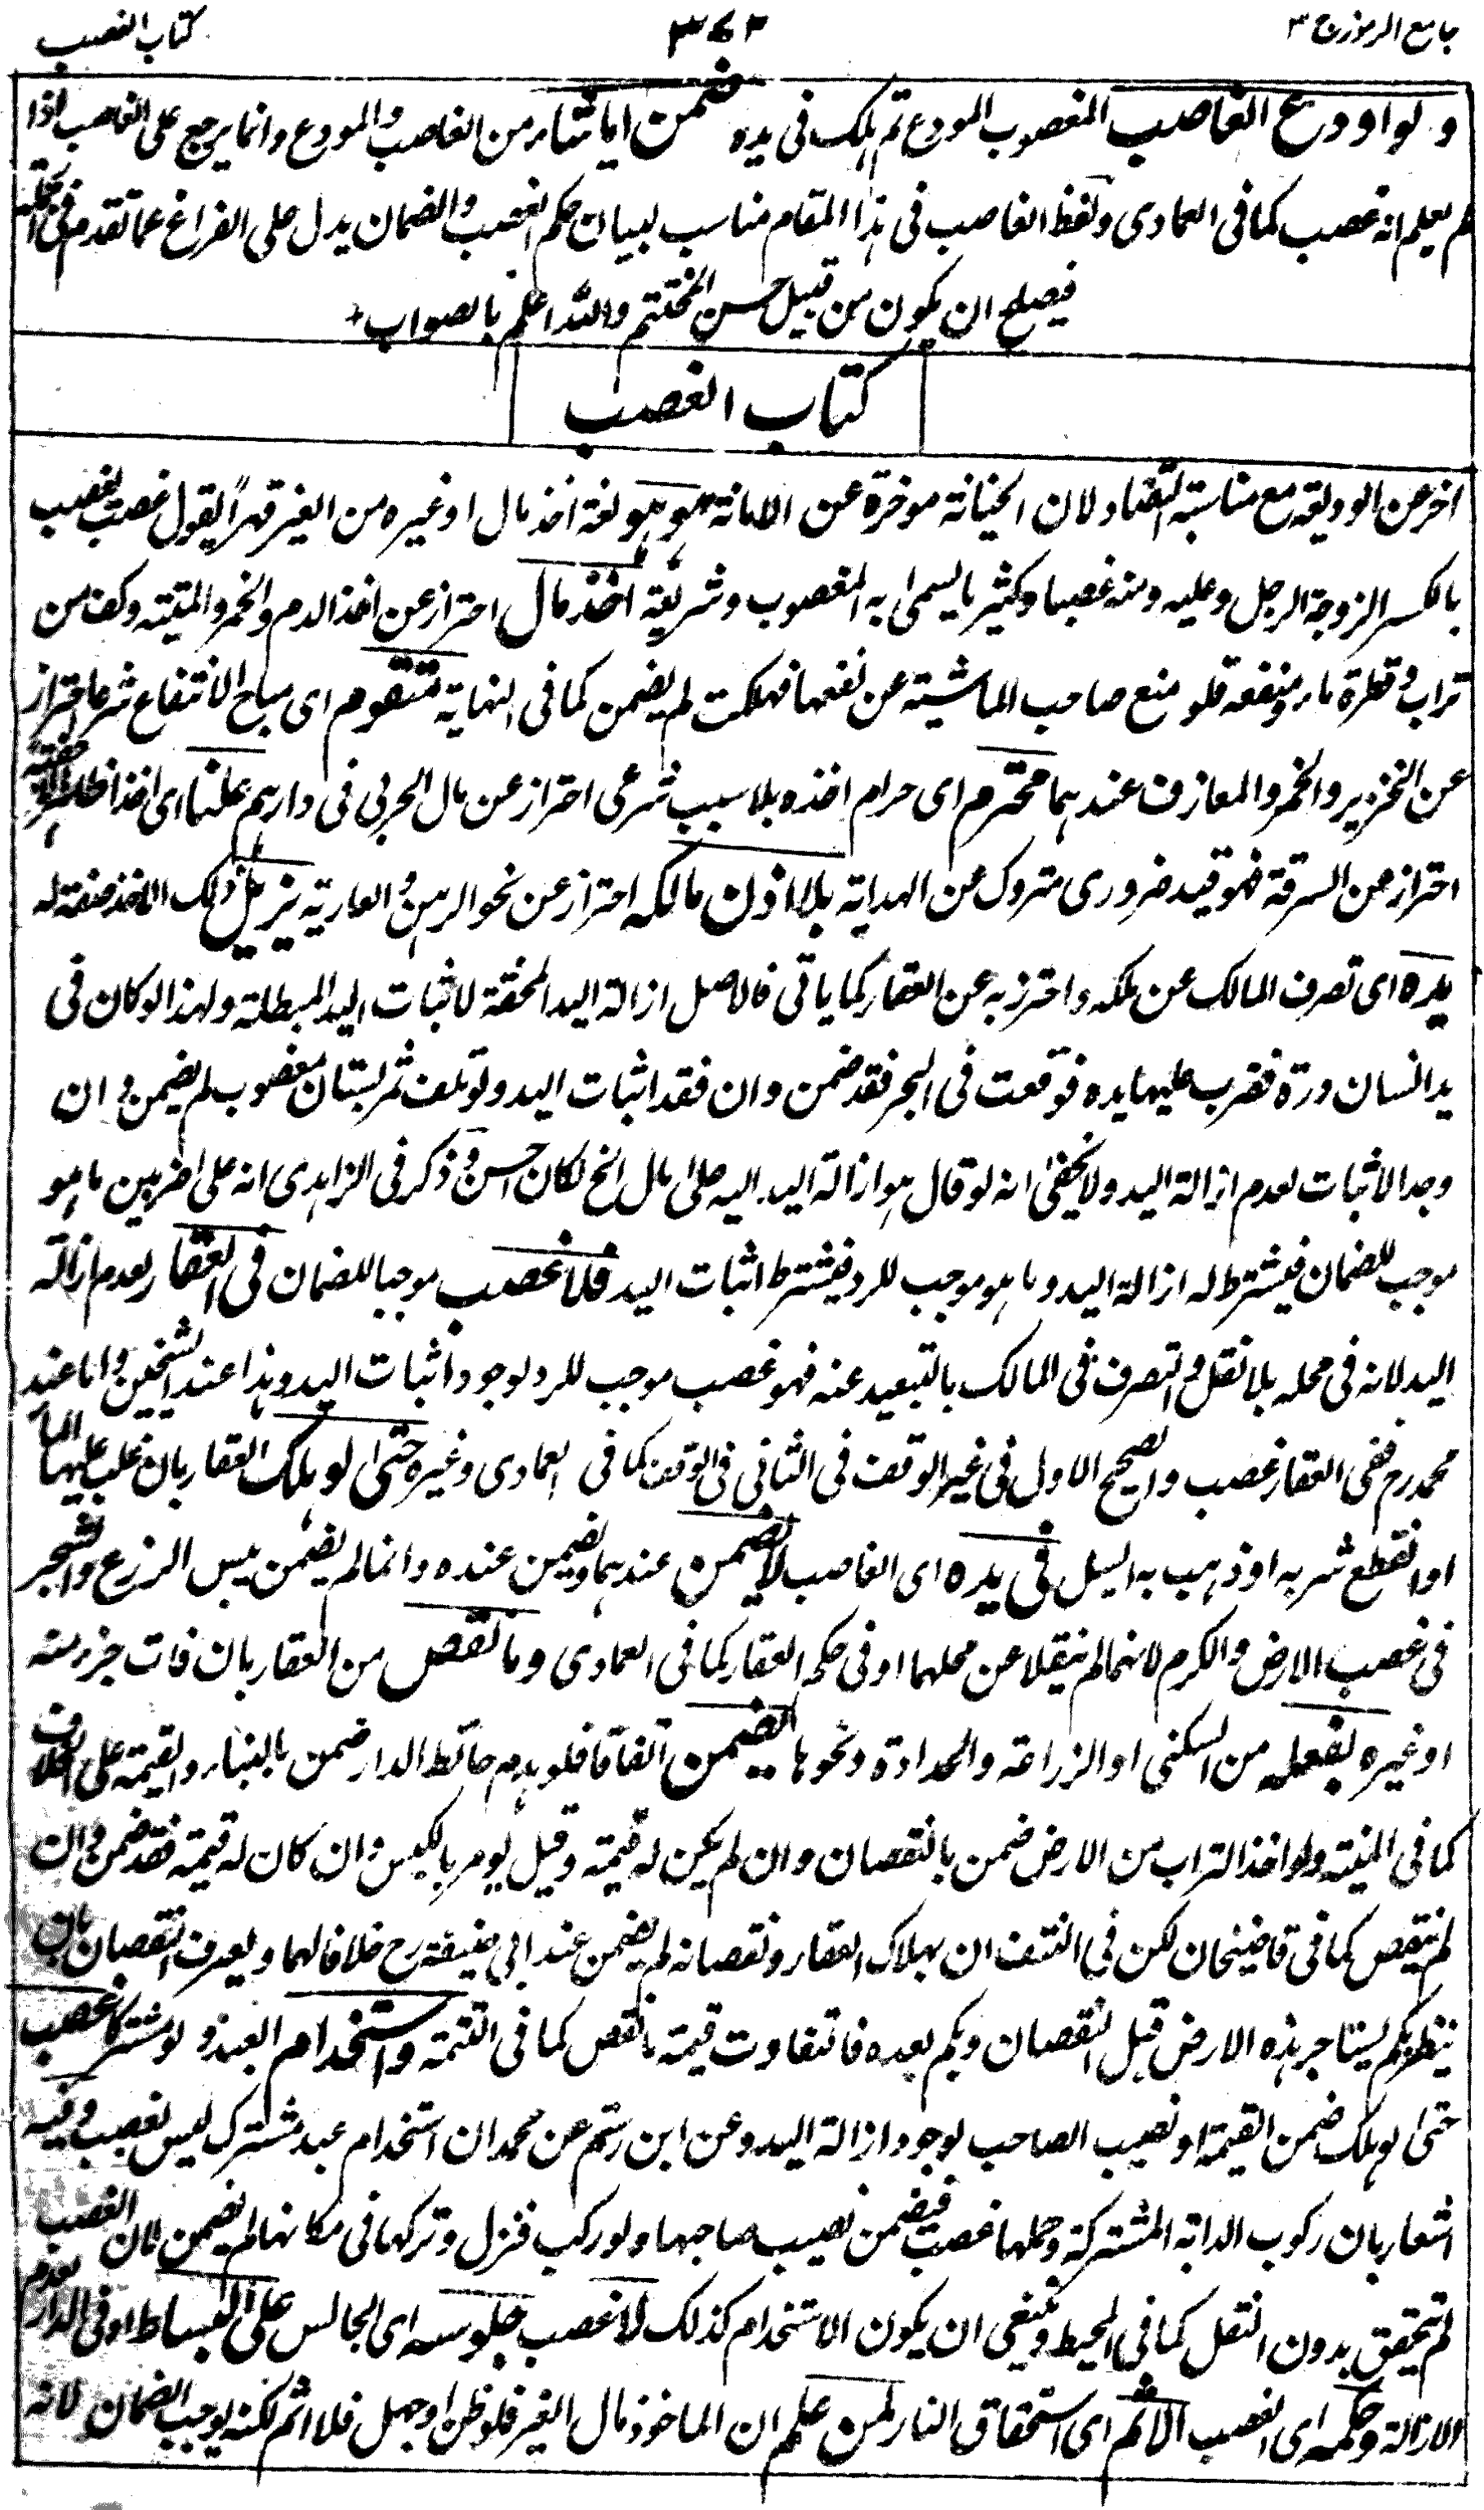 جامع الرموز ج ٣
٣٦٢
كتاب الغصب
ولو اودع الغاصب المغصوب المودع ثم هلك فى يده ضمن ايا شاء من الغاصب والمودع وانما يرجع على الغاصب اذا
لم يعلم انه غصب كما فى العمادى ولفظ الغاصب فى هذا المقام مناسب لبيان حكم الغصب والضمان يدل على الفراغ عما تقدم فى
فيصلح ان يكون من قبيل حسن المختتم والله اعلم بالصواب
كتاب الغصب
اخر عن الوديعة مع مناسبة التضاد لان الخيانة موخرة عن الامانة هو هو لغة اخذ مال او غيره من الغير قهرا يقول غصب يغصب
بالكسر الزوجة الرجل وعليه ومنه غصبا وكثير ما يسمى به المغصوب وشريعة اخذ مال احتراز عن اخذ الدم والخمر والميتة وكف من
تراب وقطرة ماء ومنفعة فلو منع صاحب الماشية عن نفعها فهلكت لم يضمن كما فى النهاية متقوم اى مباح الانتفاع شرعا احتراز
عن الخنزير والخمر والمعازف عندهما محترم اى حرام اخذه بلا سبب شرعى احتراز عن مال الحربى فى دارهم علنا اى اخذا
احتراز عن السرقة فهو قيد ضرورى متروك عن الهداية بلا اذن مالكه احتراز عن نحو الرهن والعارية يزيل ذلك الاخذ صفة له
يده اى تصرف المالك عن ملكه واحترز به عن العقار كما ياتى فالاصل ازالة اليد المحقة لا اثبات اليد المبطلة ولهذا لو كان فى
يد انسان درة فضرب عليها يده فوقعت فى البحر فقد ضمن وان فقد اثبات اليد ولو تلف ثمر بستان مغصوب لم يضمن وان
وجد الاثبات لعدم ازالة اليد ولا يخفى انه لو قال هو ازالة اليد اليه على مال الخ لكان احسن وذكر فى الزاهدى انه على ضربين ما هو
موجب للضمان فيشترط له ازالة اليد وما هو موجب للرد فيشترط اثبات اليد فلا غصب موجبا للضمان فى العقار لعدم ازالة
اليد لانه فى محله بلا نقل والتصرف فى المالك بالتبعيد عنه فهو غصب موجب للرد لوجود اثبات اليد وهذا عند الشيخين واما عند
محمد رح ففى العقار غصب والصحيح الاول فى غير الوقف فى الثانى فى الوقف كما فى العمادى وغيره حتى لو هلك العقار بان غلب عليها الماء
او انقطع شربه او ذهب به السيل فى يده اى الغاصب لا يضمن عندهما ويضمن عنده وانما لم يضمن يبس الزرع والشجر
فى غصب الارض والكرم لانهما لم ينقلا عن محلهما او فى حكم العقار كما فى العمادى وما نقص من العقار بان فات جزء منه
او غيره بفعله من السكنى او الزراعة والحدادة ونحوها يضمن اتفاقا فلو هدم حائط الدار ضمن بالبناء والقيمة على اختلاف
كما فى المنية ولو اخذ التراب من الارض ضمن بالنقصان وان لم يكن له قيمة وقيل يومر بالكبس وان كان له قيمة فقد ضمن وان
لم ينتقص كما فى قاضيخان لكن فى النتف ان بهلاك العقار ونقصانه لم يضمن عند ابى حنيفة رح خلافا لهما ويعرف النقصان بان
ينظر بكم يستاجر هذه الارض قبل النقصان وبكم بعده فاتفاوت قيمة ما نقص كما فى التتمة واستخدام العبد ولو مشتركا غصب
حتى لو هلك ضمن القيمة او نصيب الصاحب لوجود ازالة اليد وعن ابن رستم عن محمد ان استخدام عبد مشترك ليس بغصب وفيه
اشعار بان ركوب الدابة المشتركة وحملها غصب فيضمن نصيب صاحبها ولو ركب فنزل وتركها فى مكانها لم يضمن لان الغصب
لم يتحقق بدون النقل كما فى المحيط وينبغى ان يكون الاستخدام كذلك لا غصب جلوسه اى الجالس على البساط او فى الدار لعدم
الازالة وحكمه اى الغصب الاثم اى استحقاق النار لمن علم ان الماخوذ مال الغير فلو ظن او جهل فلا اثم لكنه يوجب الضمان لانه